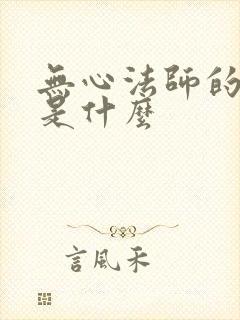 無心法師的
是什麼
言風禾